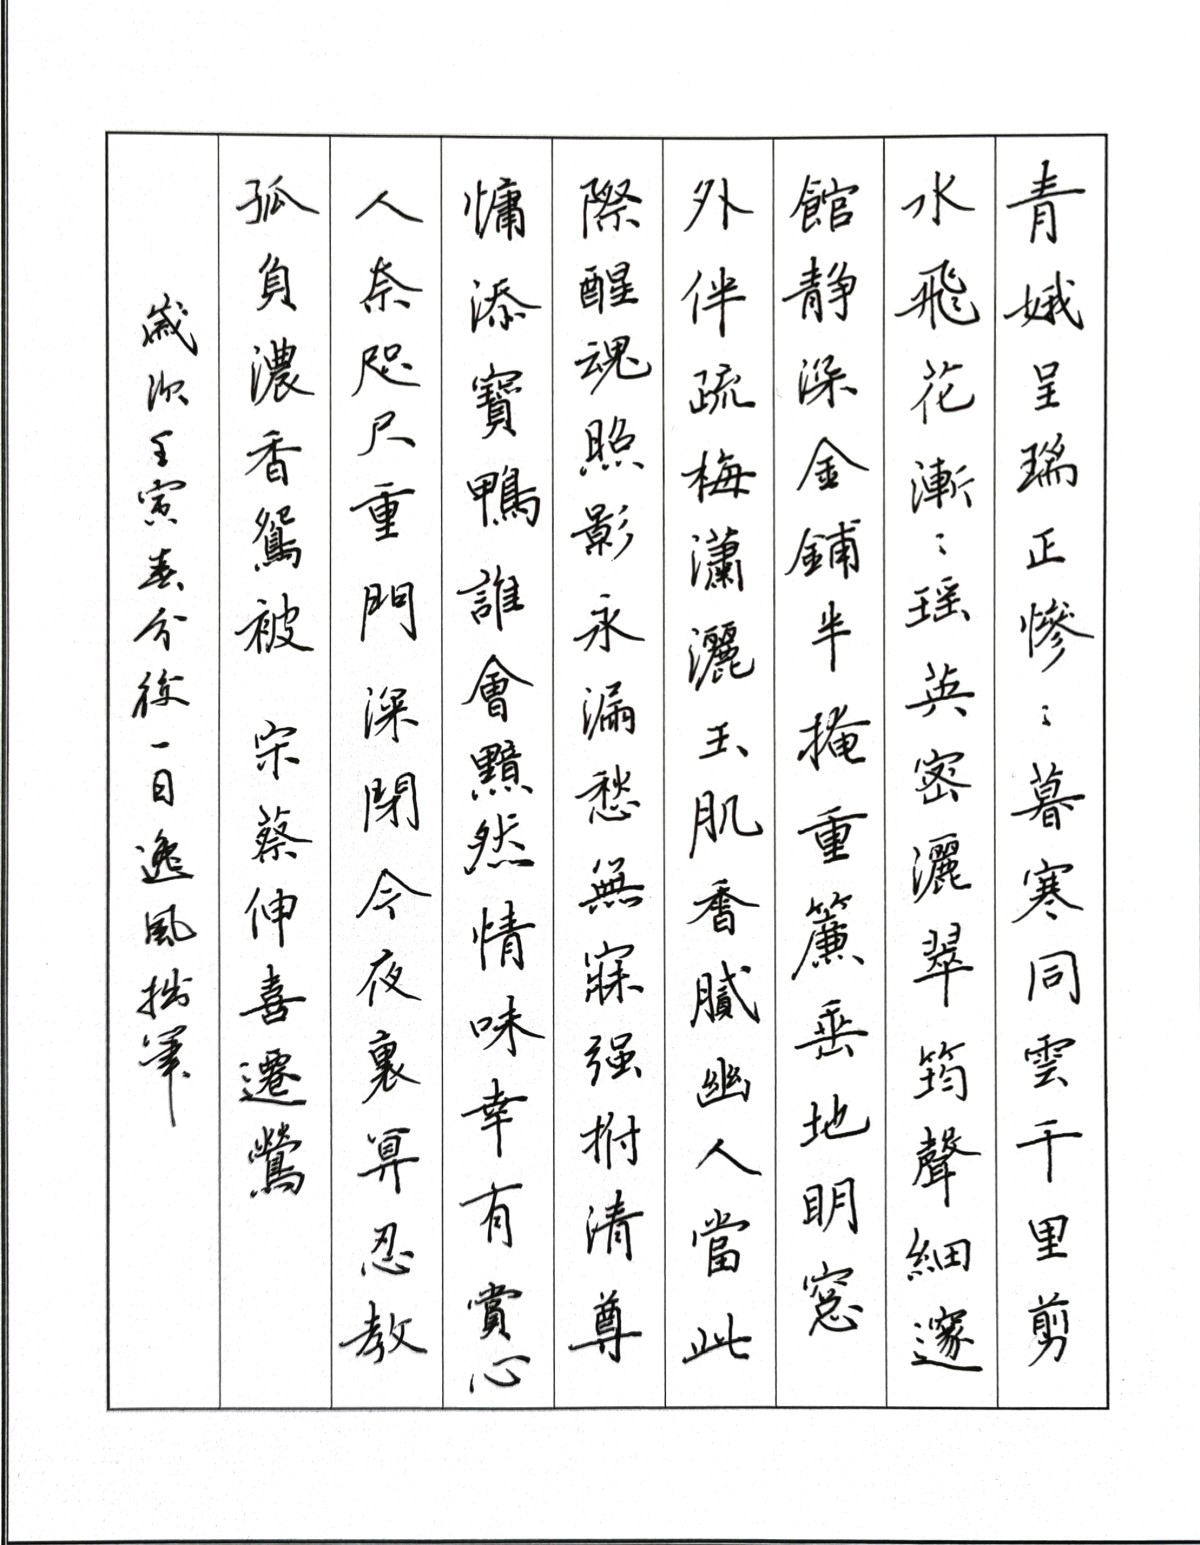 青娥呈瑞正慘〻暮寒同雲千里剪
水飛花漸〻瑶英密灑翠筠聲細邃
館静深金鋪半掩重簾垂地明窓
外伴疏梅瀟灑玉肌香膩幽人當此
際醒魂照影永漏愁無寐强拊清尊
慵添寶鴨誰會黯然情味幸有賞心
人奈咫尺重門深閉今夜裏算忍教
孤負濃香鴛被 宋蔡伸喜遷鶯
歲次壬寅春分後一日逸風拙筆